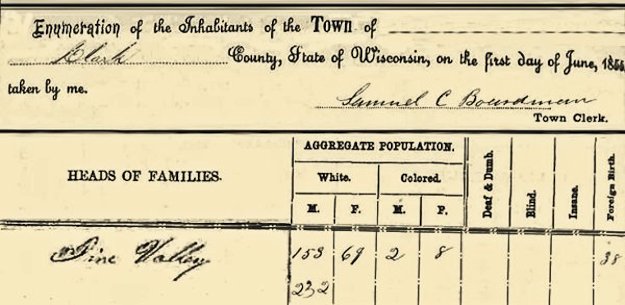 Enumeration of the Inhabitants of the Town of
Clark County, State of Wisconsin, on the first day of June, 1855
taken by me.
Samuel C Boardman
Town Clerk.
HEADS OF FAMILIES.
AGGREGATE POPULATION.
White. Colored.
M. F. M. F.
Deaf & Dumb.
Blind.
Insane.
Foreign Birth.
Pine Valley 153 69 2 8 38
232